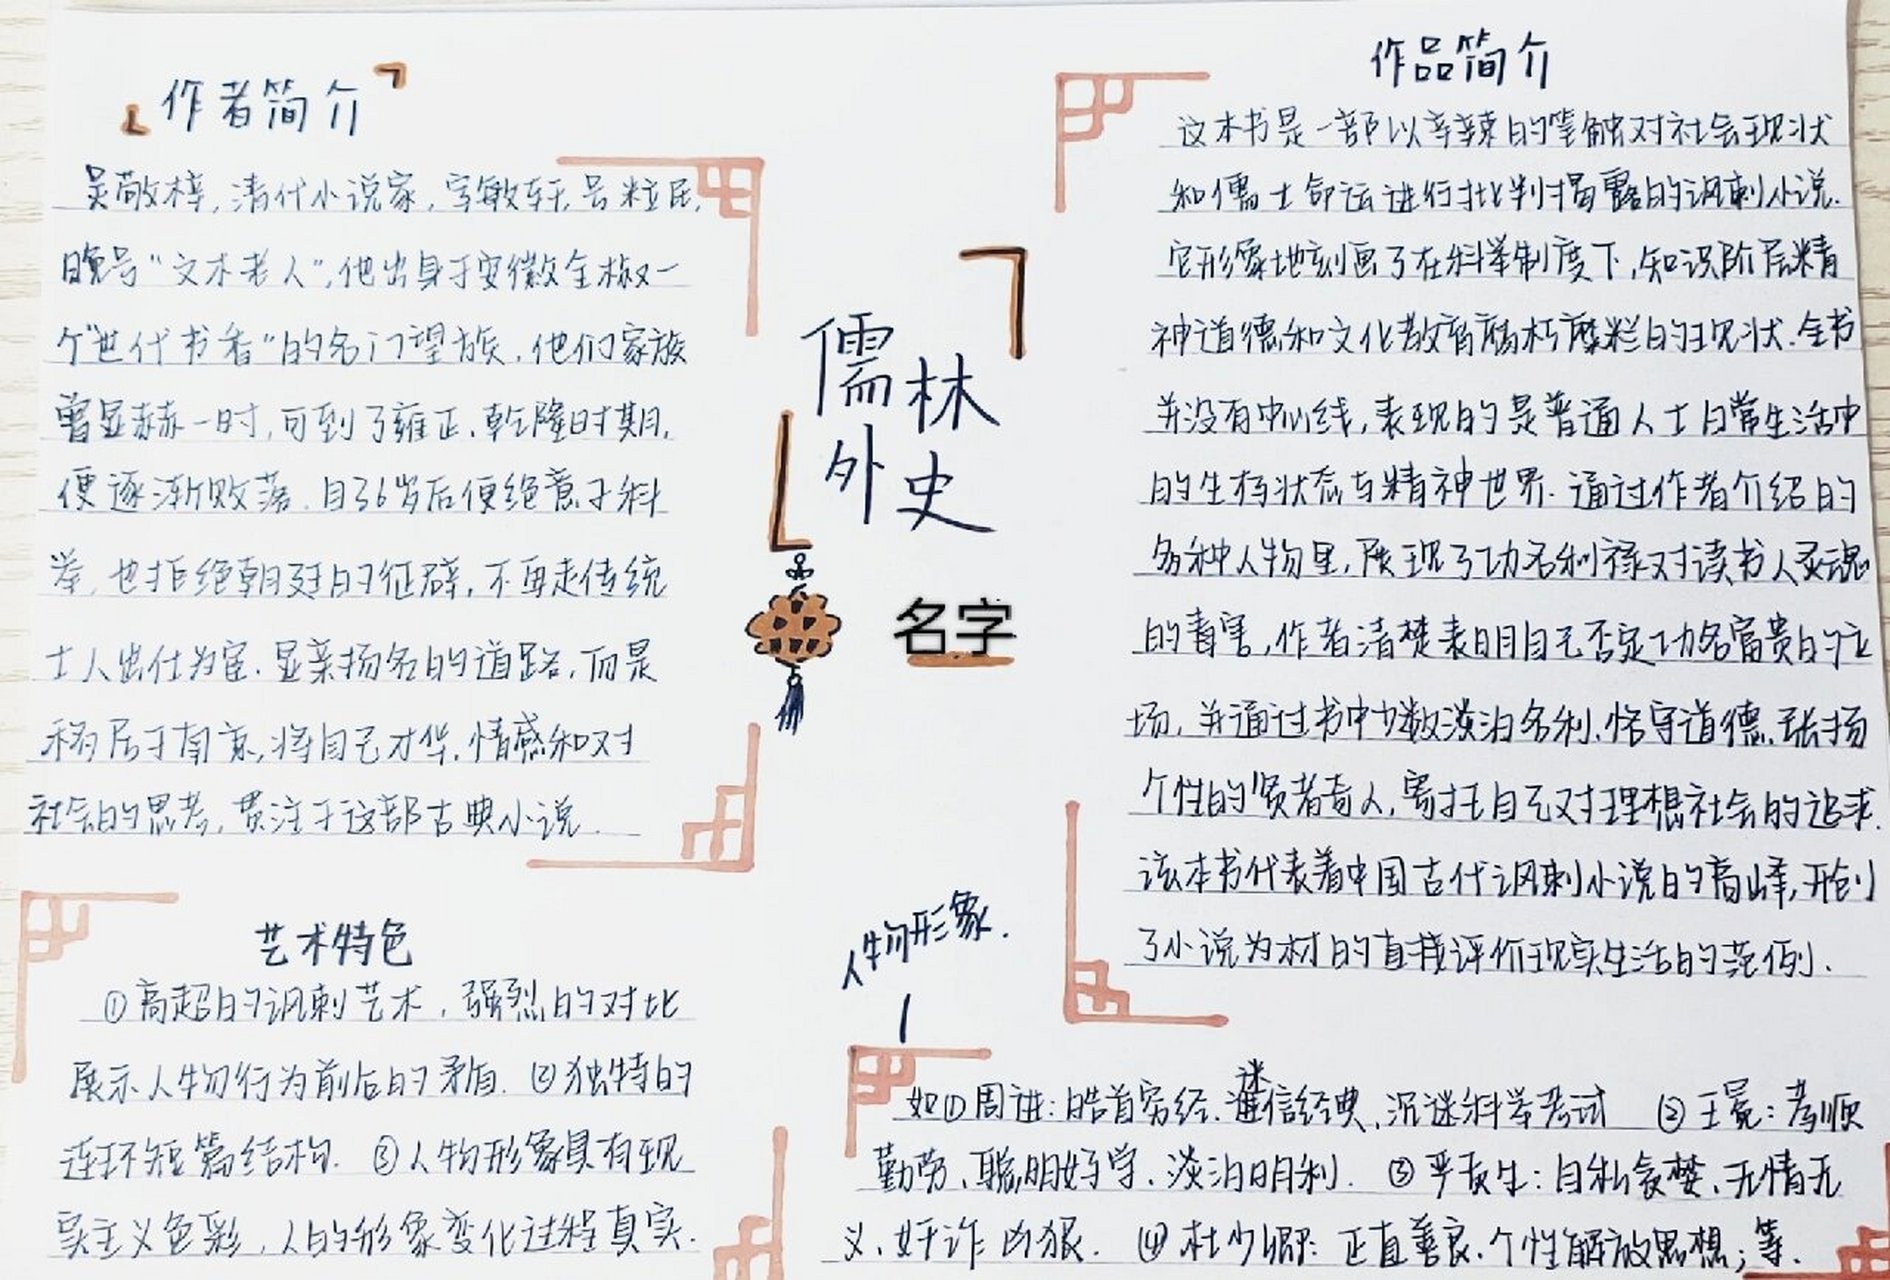 作者简介
吴敬梓,清代小说家,字敏轩,号粒民,
晚号“文木老人”,他出身于安徽全椒一
个“世代书香”的名门望族,他们家族
曾显赫一时,可到了雍正、乾隆时期,
便逐渐败落.自36岁后便绝意于科
举,也拒绝朝廷的征辟,不再走传统
士人出仕为官.显亲扬名的道路,而是
移居于南京,将自己才华.情感和对
社会的思考,贯注于这部古典小说.
艺术特色
①高超的讽刺艺术,强烈的对比
展示人物行为前后的矛盾.②独特的
连环短篇结构.③人物形象具有现
实主义色彩,人的形象变化过程真实.
儒林
外史
名字
作品简介
这本书是一部以辛辣的笔触对社会现状
和儒士命运进行批判揭露的讽刺小说.
它形象地刻画了在科举制度下,知识阶层精
神道德和文化教育腐朽糜烂的现状.全书
并没有中心线,表现的是普通人士日常生活中
的生存状态与精神世界.通过作者介绍的
各种人物里,展现了功名利禄对读书人灵魂
的毒害,作者清楚表明自己否定功名富贵的立
场,并通过书中少数淡泊名利.恪守道德.张扬
个性的贤者奇人,寄托自己对理想社会的追求.
该本书代表着中国古代讽刺小说的高峰,开创
了小说为材的直接评价现实生活的范例.
人物形象.
如①周进:皓首穷经.迷信经典、沉迷科举考试 ②王冕:孝顺
勤劳、聪明好学、淡泊明利. ③严贡生:自私贪婪、无情无
义、奸诈凶狠. ④杜少卿:正直善良.个性解放思想;等.